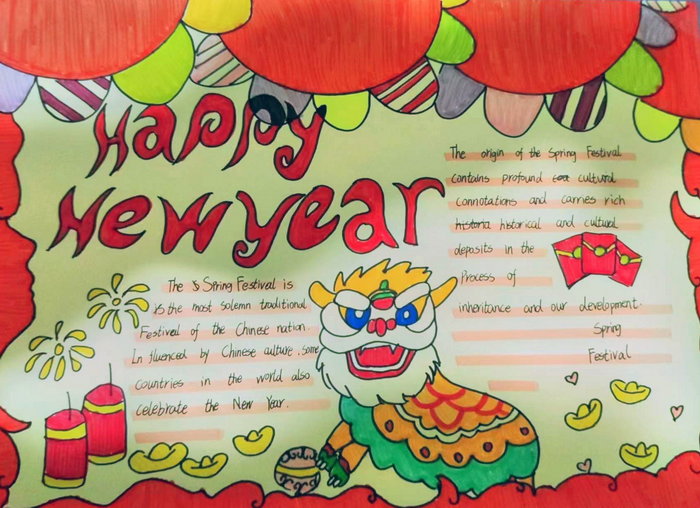 Happy
New year
The origin of the Spring Festival
contains profound cultural
connotations and carries rich
historia historical and cultural
deposits in the
Process of
inheritance and our development.
Spring
Festival
The s Spring Festival is
is the most solemn traditional
Festival of the Chinese nation.
Influenced by Chinese culture, some
countries in the world also
celebrate the New Year.